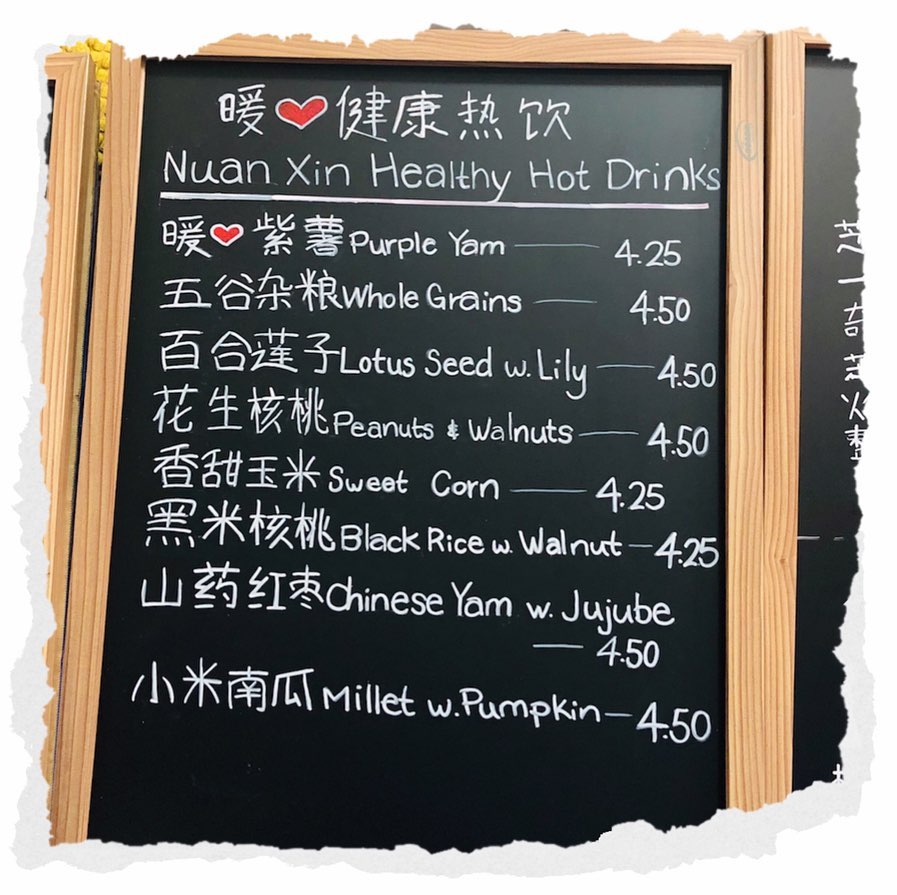 暖❤健康热饮
Nuan Xin Healthy Hot Drinks
暖❤紫薯 Purple Yam — 4.25
五谷杂粮 Whole Grains — 4.50
百合莲子 Lotus Seed w. Lily — 4.50
花生核桃 Peanuts & Walnuts — 4.50
香甜玉米 Sweet Corn — 4.25
黑米核桃 Black Rice w. Walnut — 4.25
山药红枣 Chinese Yam w. Jujube
— 4.50
小米南瓜 Millet w. Pumpkin — 4.50